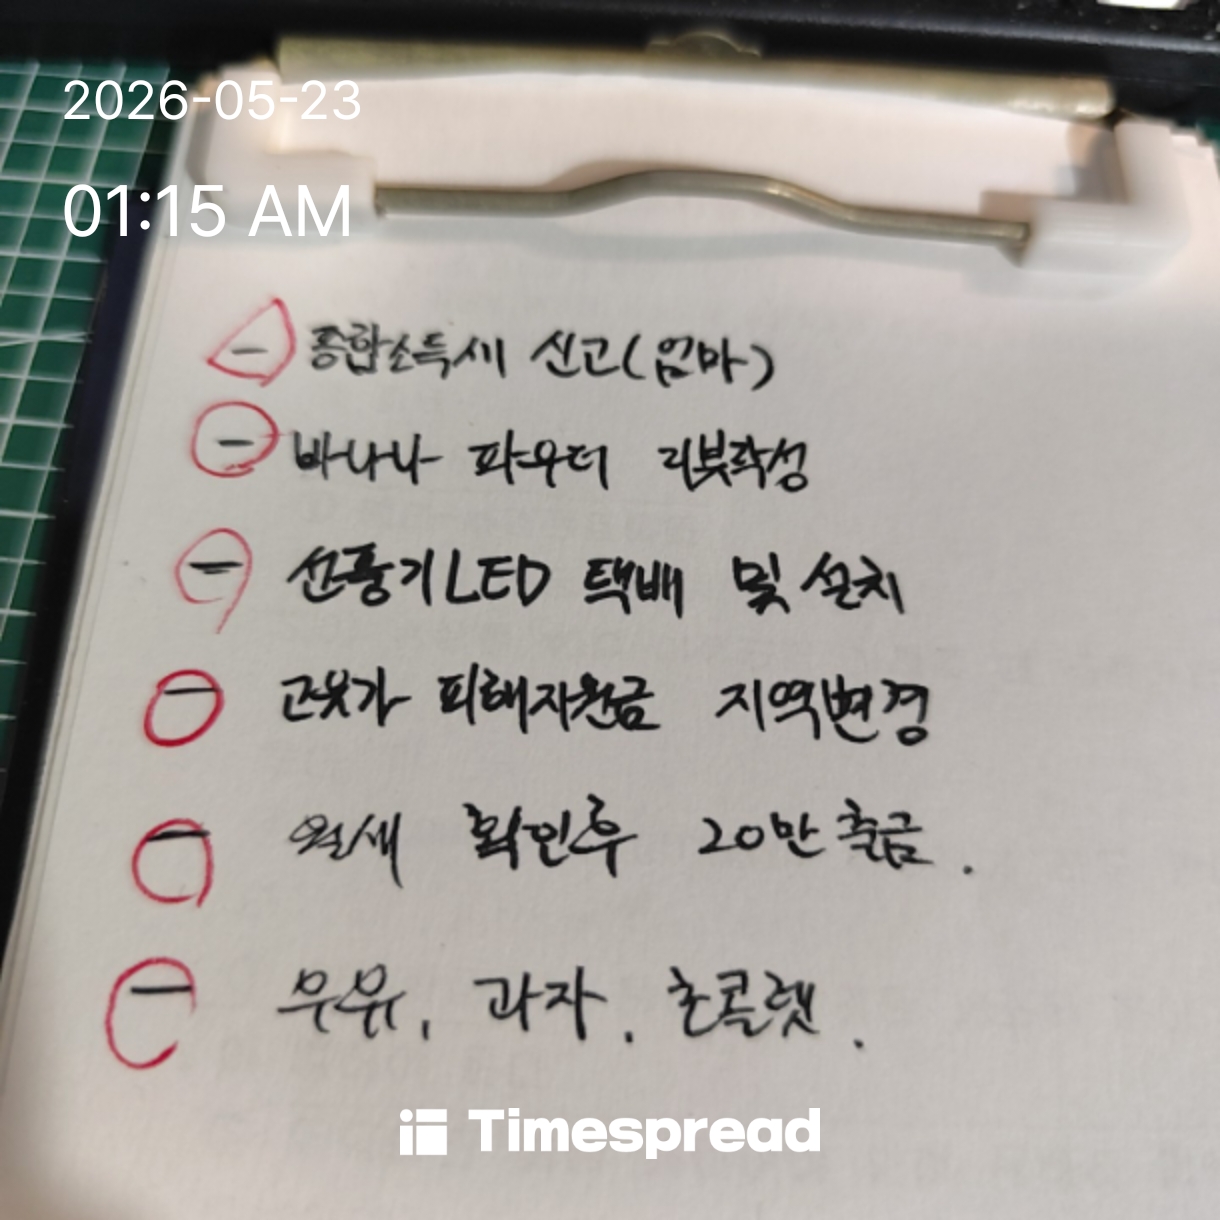 2026-05-23
01:15 AM
- 종합소득세 신고(엄마)
- 바나나 파우더 리뷰작성
- 선풍기 LED 택배 및 설치
- 고유가 피해지원금 지역변경
- 월세 확인후 20만 출금.
- 우유, 과자, 초콜렛.
Timespread